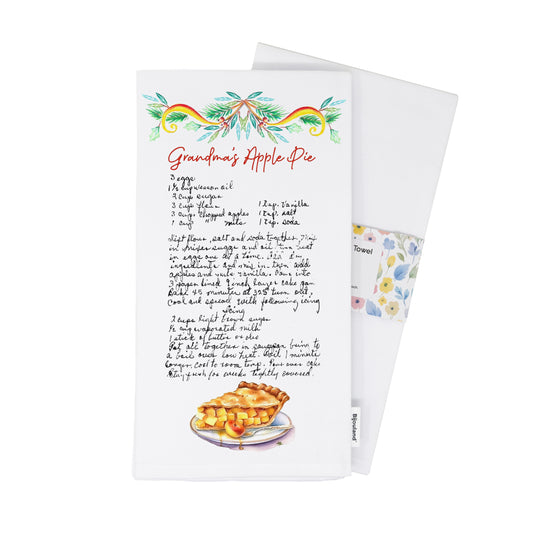 Grandma's Apple Pie
3 eggs
1½ cup wesson oil
2 cup sugar
3 cup flour 1 tsp. vanilla
3 cups chopped apples 1 tsp. salt
1 cup " nuts 1 tsp. soda
Sift flour, salt and soda together. Mix
in mixer sugar and oil. then beat
in eggs one at a time.
ingredients and mix in. then add
apples and nuts vanilla. Pour into
3 paper lined 9 inch layer cake pan
Bake 45 minutes at 325 turn out,
cool and spread with following icing
Icing
2 cups light brown sugar
½ cup evaporated milk
1 stick of butter or oleo
Put all together in saucepan bring to
a boil over low heat. Boil 1 minute
longer, cool to room temp. Pour over cake
Stay fresh for weeks tightly covered.
Towel
Bijouland